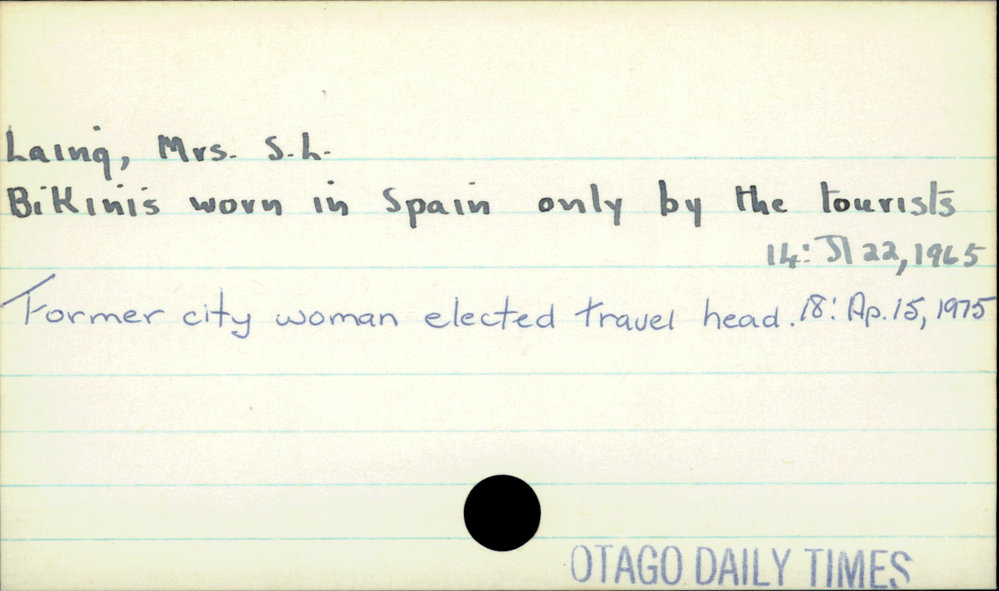 Laing, Mrs. S.L.
Bikinis worn in Spain only by the tourists
14: Jl 22, 1965
Former city woman elected travel head. 18: Ap. 15, 1975
OTAGO DAILY TIMES